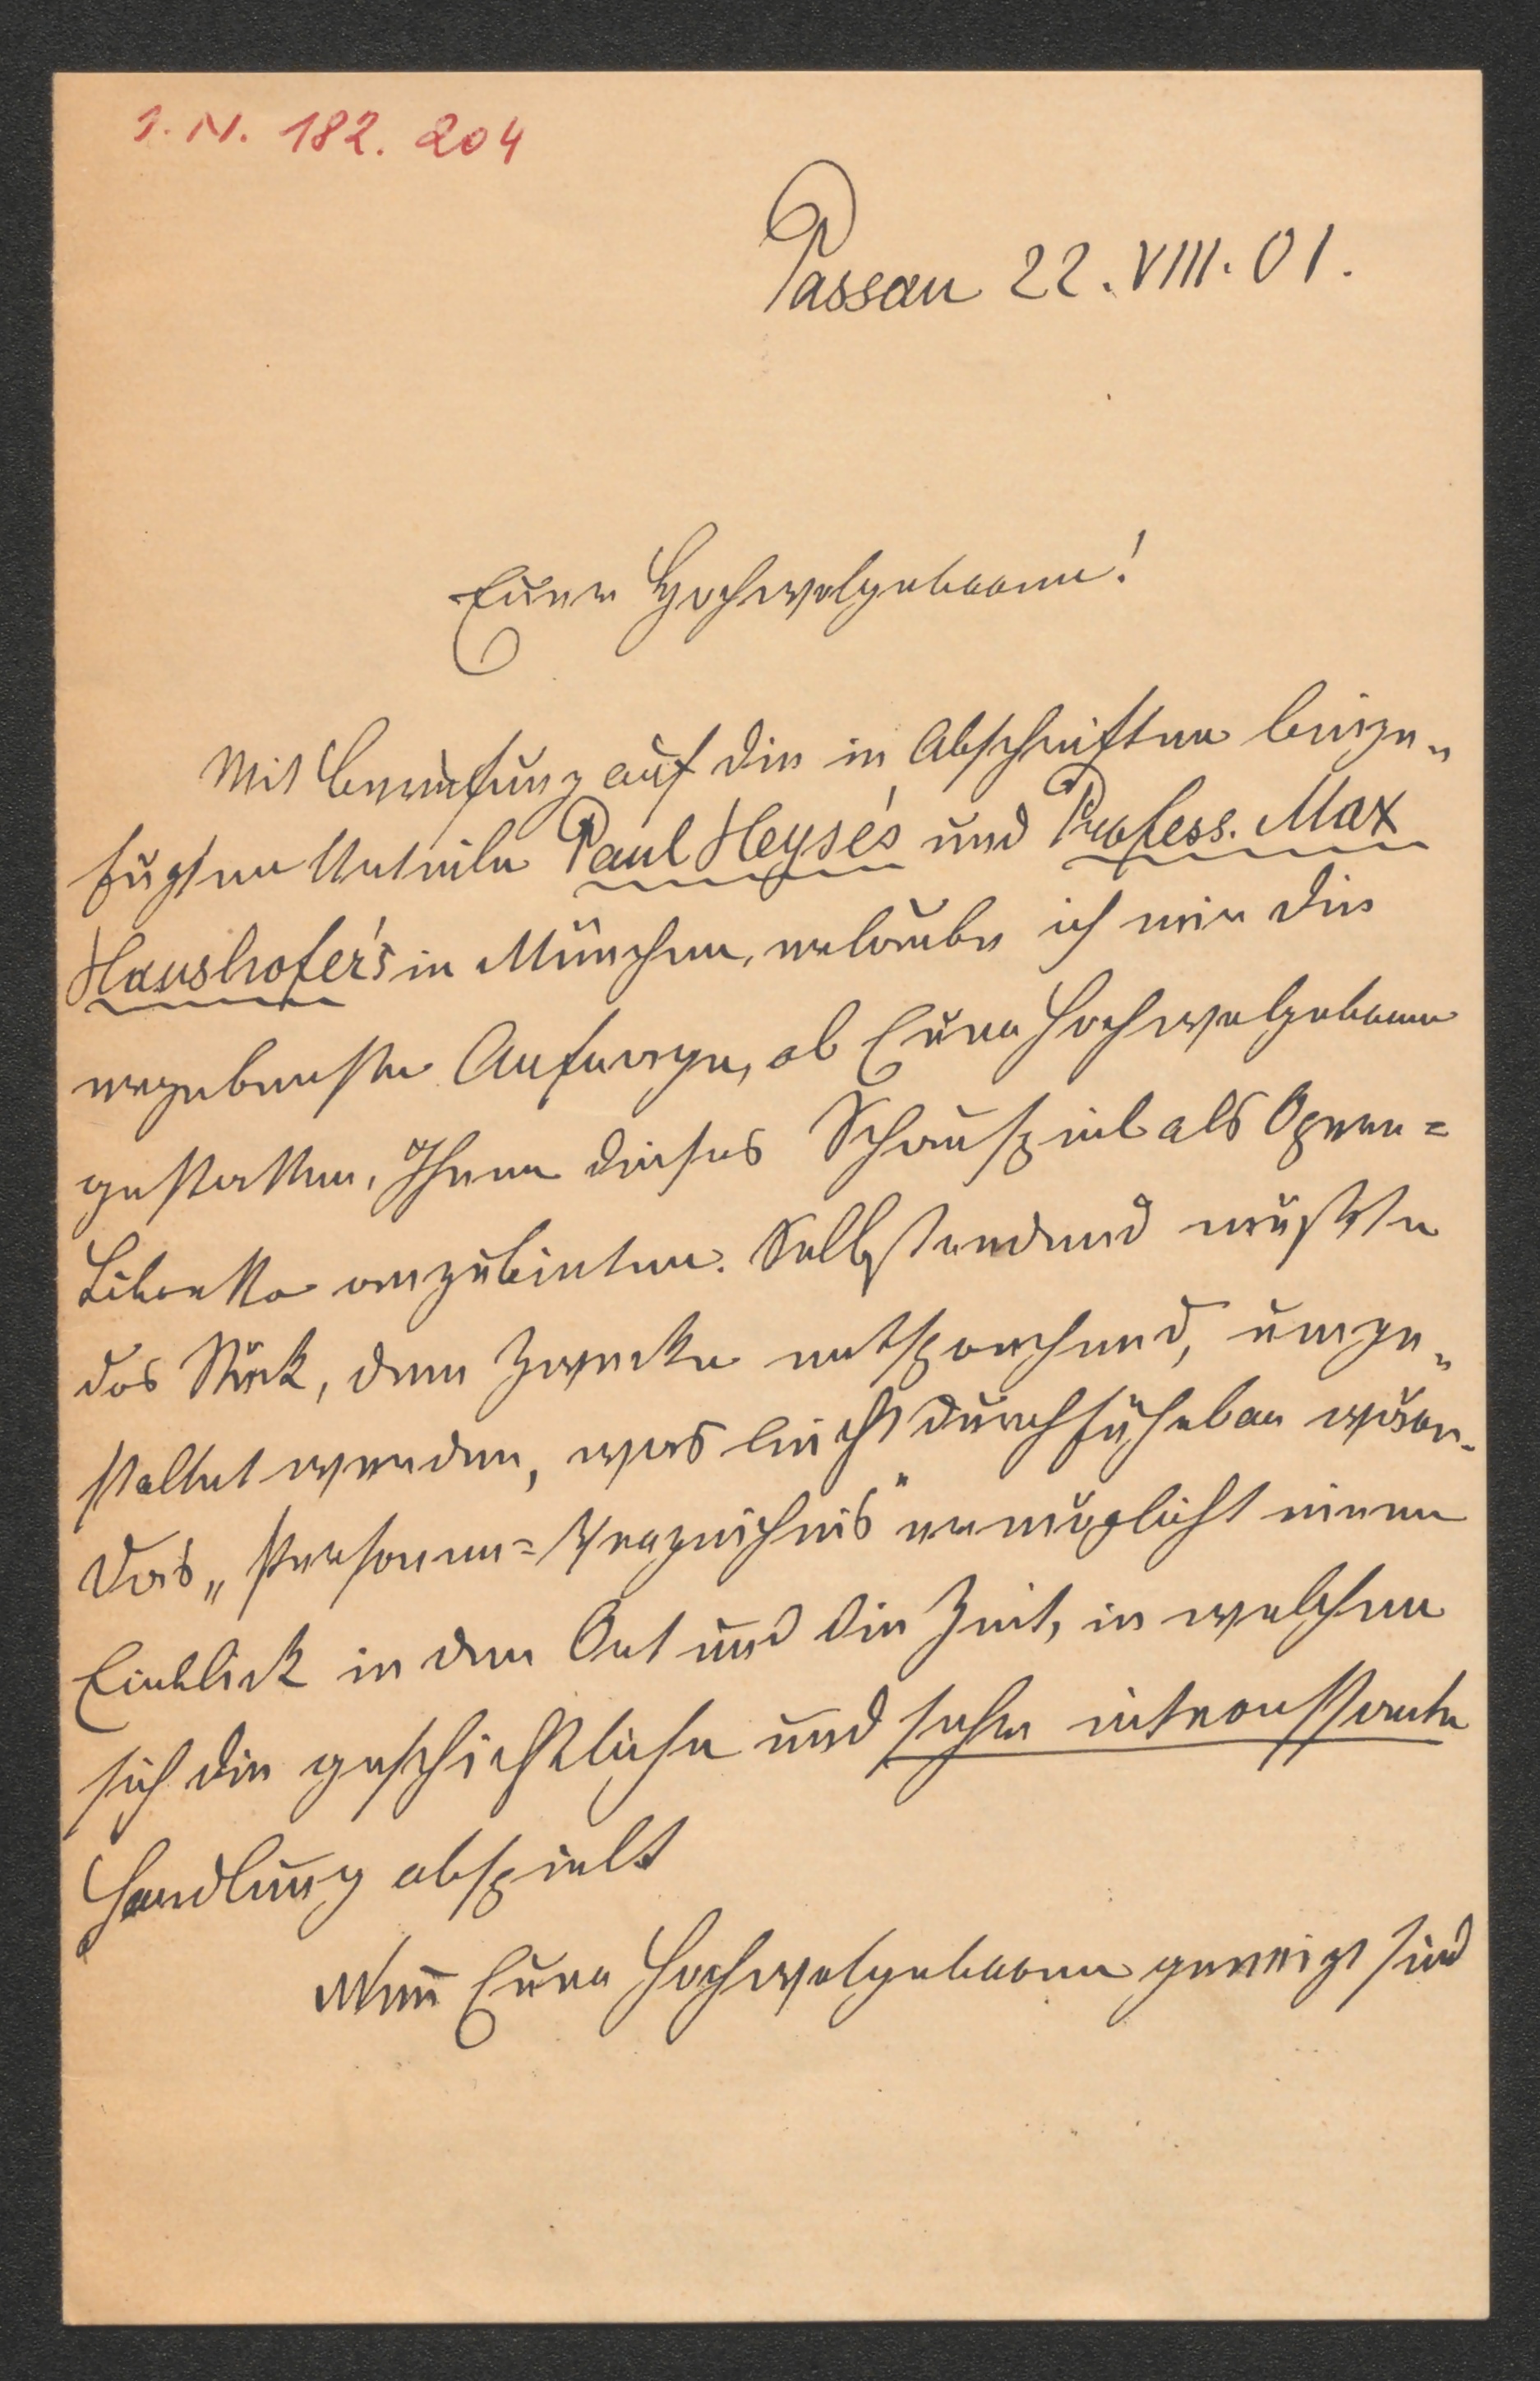 I. N. 182. 204
Passau 22. VIII. 01.
Euer Hochwolgeboren!
Mit Berufung auf die in Abschriften beige„
fügten Urteile Paul Heyse's und Profess. Max
Haushofer's in München, erlaube ich mir die
ergebenste Anfrage, ob Euer Hochwolgeboren
gestatten, Ihnen dieses Schauspiel als Opern=
Libretto anzubieten. Selbstredend müßte
das Stück, dem Zwecke entsprechend, umge„
staltet werden, was leicht durchführbar wäre.
Das „Personen=Verzeichnis" ermöglicht einen
Einblick in den Ort und die Zeit, in welchen
sich die geschichtliche und sehr interessante
Handlung abspielt
Wenn Euer Hochwolgeboren geneigt sind